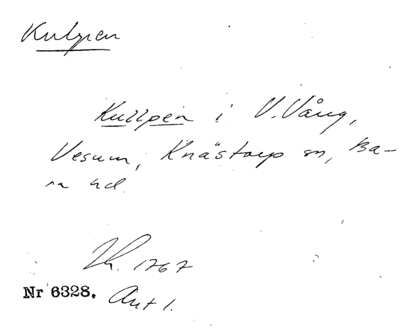 Kulpen
Kullpen i V. Vång,
Vesum, Knästorp sn, Ba-
ra hd.
1767
Nr 6328. Akt 1.